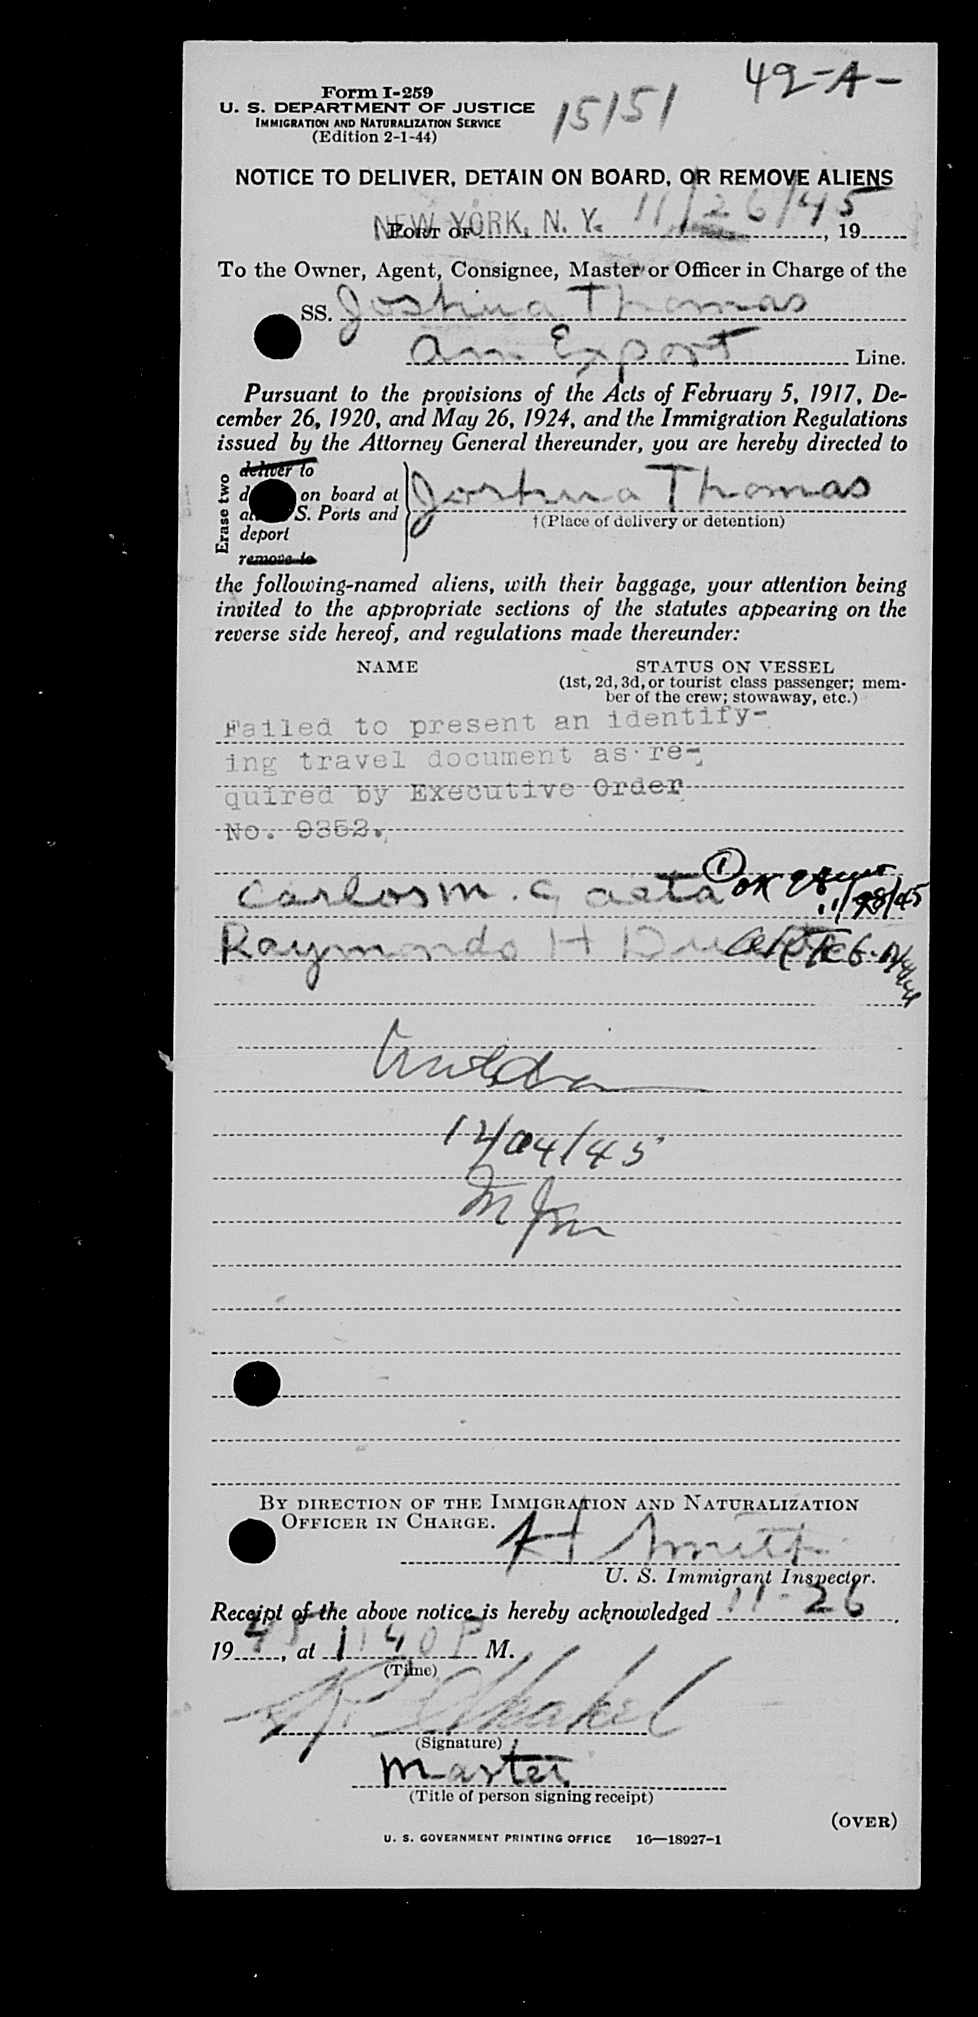 42-A-
Form I-259
U. S. DEPARTMENT OF JUSTICE
IMMIGRATION AND NATURALIZATION SERVICE
(Edition 2-1-44)
15151
NOTICE TO DELIVER, DETAIN ON BOARD, OR REMOVE ALIENS
PORT OF NEW YORK, N. Y. 11/26/45, 19
To the Owner, Agent, Consignee, Master or Officer in Charge of the
SS. Joshua Thomas
Am Export Line.
Pursuant to the provisions of the Acts of February 5, 1917, De-
cember 26, 1920, and May 26, 1924, and the Immigration Regulations
issued by the Attorney General thereunder, you are hereby directed to
Erase two
deliver to
on board at
S. Ports and
deport
remove to
Joshua Thomas
†(Place of delivery or detention)
the following-named aliens, with their baggage, your attention being
invited to the appropriate sections of the statutes appearing on the
reverse side hereof, and regulations made thereunder:
NAME
STATUS ON VESSEL
(1st, 2d, 3d, or tourist class passenger; mem-
ber of the crew; stowaway, etc.)
Failed to present an identify-
ing travel document as re-
quired by Executive Order
No. 9352.
Carlos M. Gaeta 1 OK 11/28/45
Raymondo H
12/04/45
BY DIRECTION OF THE IMMIGRATION AND NATURALIZATION
OFFICER IN CHARGE.
H Smith
U. S. Immigrant Inspector.
Receipt of the above notice is hereby acknowledged 11-26,
1945, at 1140 P M.
(Time)
(Signature)
Master
(Title of person signing receipt)
(OVER)
U. S. GOVERNMENT PRINTING OFFICE 16—18927-1